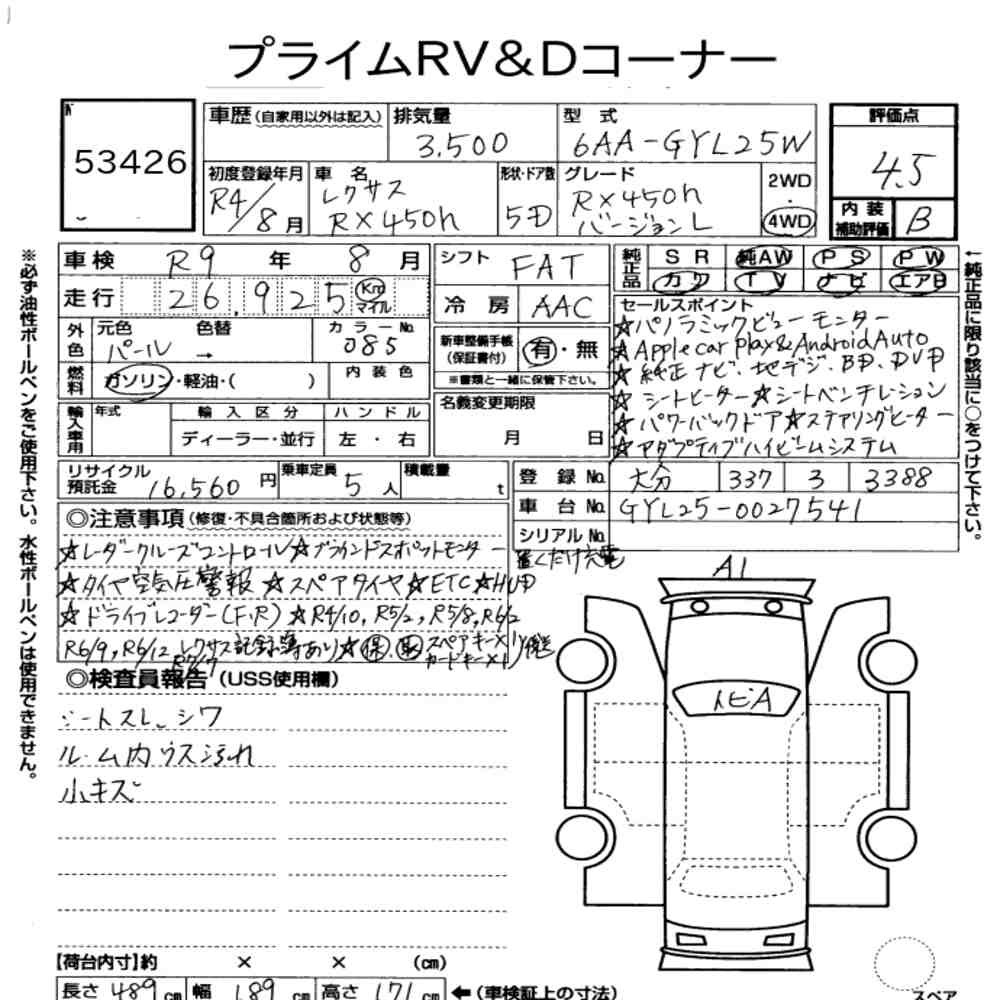 プライムRV&Dコーナー
53426
車歴(自家用以外は記入) 排気量 3.500 型式 6AA-GYL25W 評価点 4.5
初度登録年月 R4/8月 車名 レクサス RX450h 形状・ドア数 5D グレード RX450h バージョンL 2WD・4WD
内装補助評価 B
車検 R9年 8月 シフト FAT 純正品 SR 純AW PS PW
カワ TV ナビ エアB
走行 26,925 Km マイル 冷房 AAC
セールスポイント
☆パノラミックビューモニター
☆Apple car play&Android Auto
☆純正ナビ.地デジ.BD.DVD
☆シートヒーター☆シートベンチレーション
☆パワーバックドア☆ステアリングヒーター
☆アダプティブハイビームシステム
外色 元色 パール 色替 → カラーNo. 085
新車整備手帳(保証書付) 有・無
※書類と一緒に保管下さい。
燃料 ガソリン・軽油・( ) 内装色
輸入車用 年式 輸入区分 ハンドル
ディーラー・並行 左・右
名義変更期限 月 日
リサイクル預託金 16,560円 乗車定員 5人 積載量 t
登録No. 大分 337 3 3388
車台No. GYL25-0027541
シリアルNo.
◎注意事項(修復・不具合箇所および状態等)
置くだけ充電
☆レーダークルーズコントロール☆ブラインドスポットモニター
☆タイヤ空気圧警報 ☆スペアタイヤ☆ETC☆HUD
☆ドライブレコーダー(F.R) ☆R4/10, R5/2, R5/8, R6/2
R6/9, R6/12 レクサス記録簿あり☆保.取 スペアキー×1
R7/7 カードキー×1
◎検査員報告(USS使用欄)
シートスレ、シワ
ルーム内ウス汚れ
小キズ
A1
トビA
【荷台内寸】約 × × (cm)
長さ 489cm 幅 189cm 高さ 171cm ←(車検証上の寸法)
スペア
※必ず油性ボールペンをご使用下さい。水性ボールペンは使用できません。
←純正品に限り該当に○をつけて下さい。